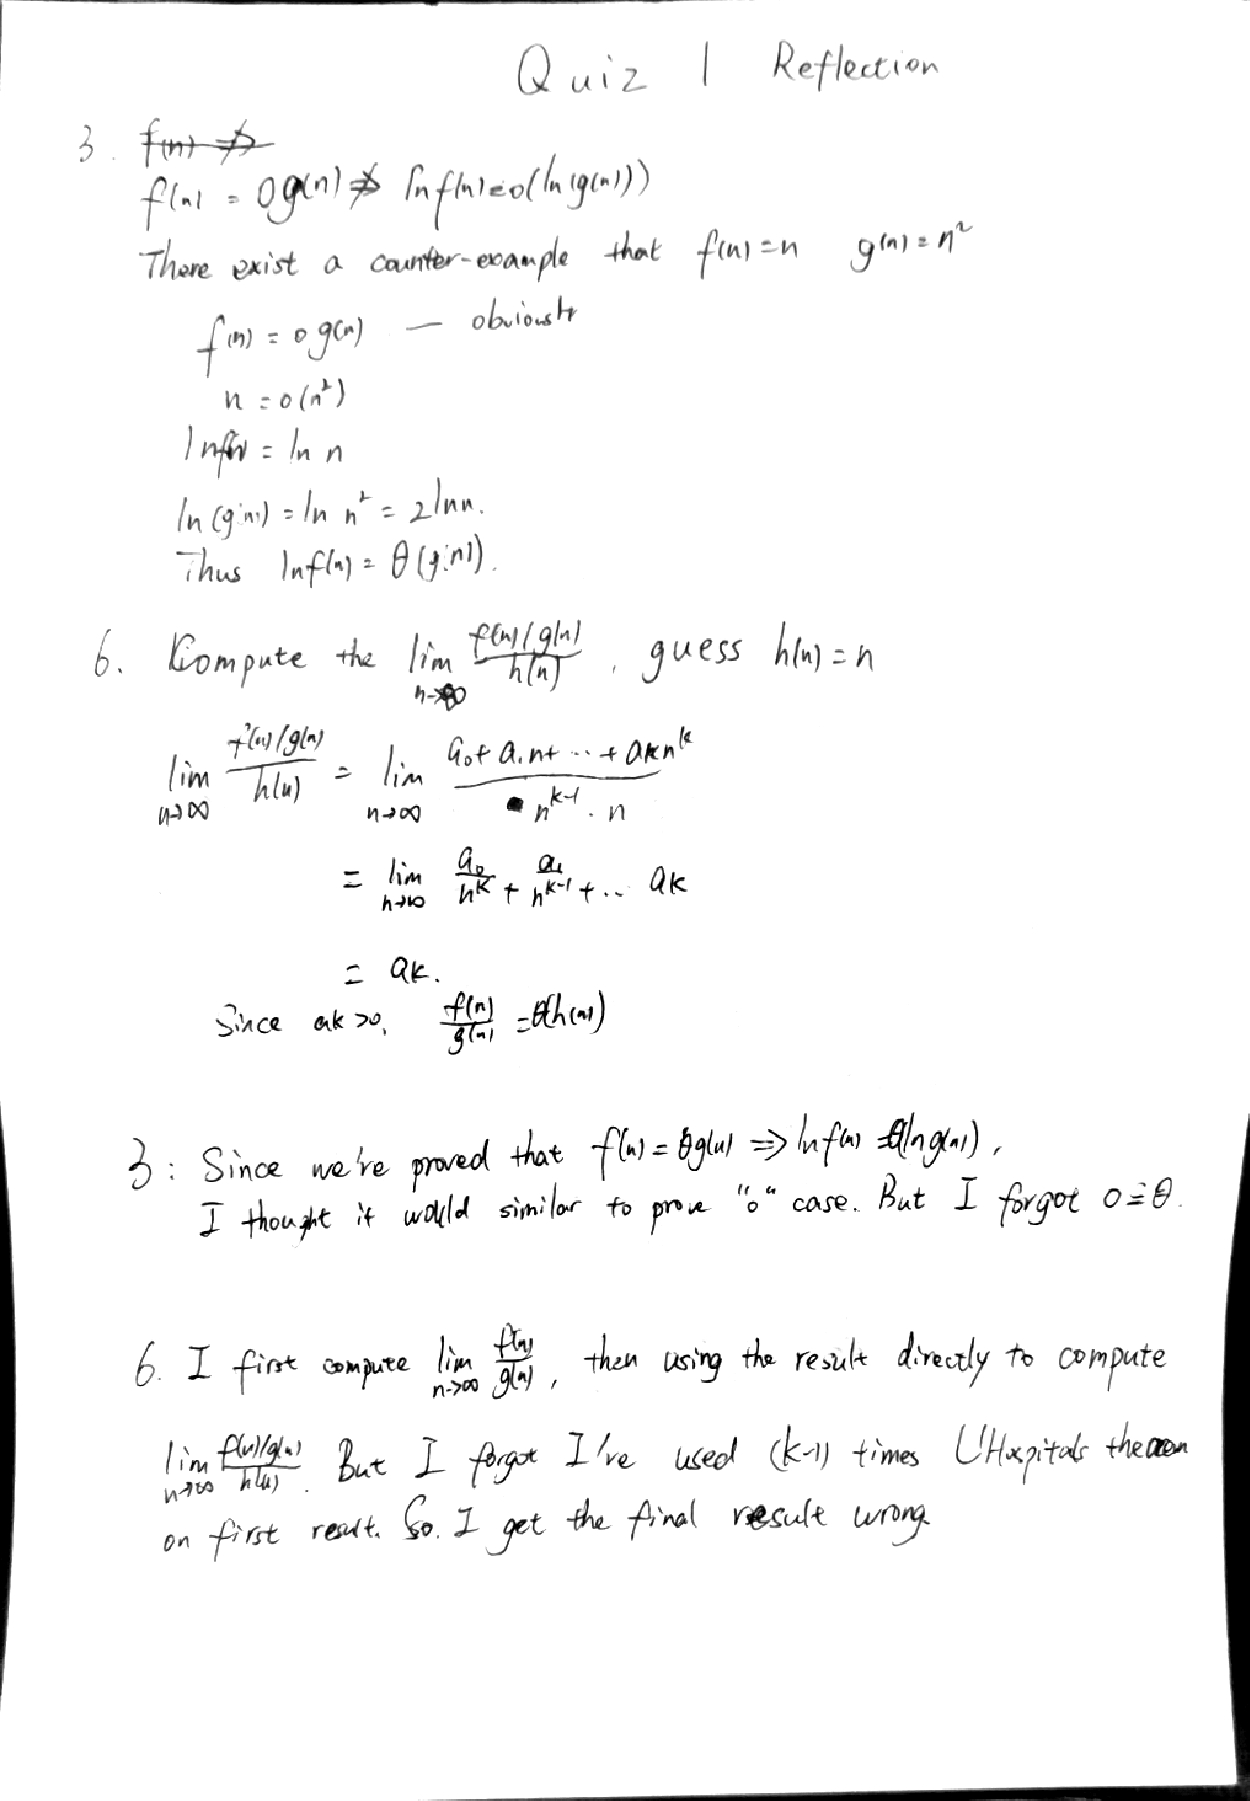 Quiz 1 Reflection
3. f(n) ⇏
f(n) = o g(n) ⇏ ln f(n) = o(ln(g(n)))
There exist a counter-example that f(n) = n g(n) = n²
f(n) = o g(n) — obviously
n = o(n²)
ln f(n) = ln n
ln(g(n)) = ln n² = 2lnn.
Thus lnf(n) = θ(g(n)).
6. Compute the lim n→∞ (f(n)/g(n))/h(n), guess h(n) = n
lim n→∞ (f(n)/g(n))/h(n) = lim n→∞ (a0 + a1n + ... + akn^k)/(n^(k-1) . n)
= lim n→∞ a0/n^k + a1/n^(k-1) + ... ak
= ak.
Since ak >0, f(n)/g(n) = θ(h(n))
3: Since we're proved that f(n) = θg(n) ⇒ ln f(n) = θ(ln g(n)),
I thought it would similar to prove "o" case. But I forgot o ≠ θ.
6. I first compute lim n→∞ f(n)/g(n), then using the result directly to compute
lim n→∞ (f(n)/g(n))/h(n). But I forgot I've used (k-1) times L'Hospitals theorem
on first result. So. I get the final result wrong